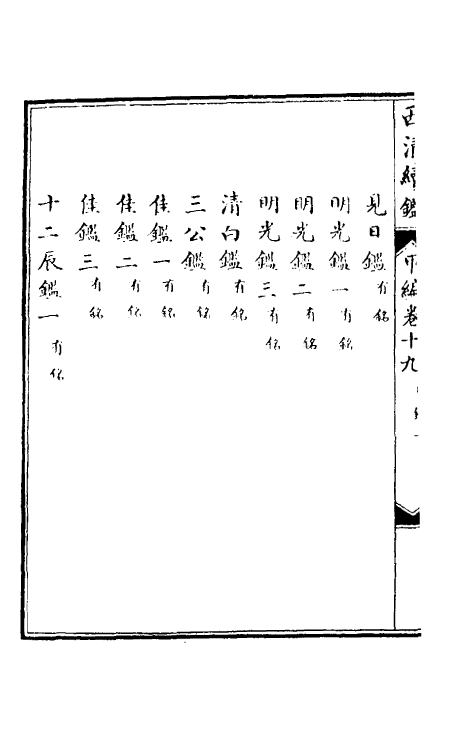 西清續鑑 甲編卷十九
見日鑑 有銘
明光鑑一 有銘
明光鑑二 有銘
明光鑑三 有銘
清白鑑 有銘
三公鑑 有銘
佳鑑一 有銘
佳鑑二 有銘
佳鑑三 有銘
十二辰鑑一 有銘